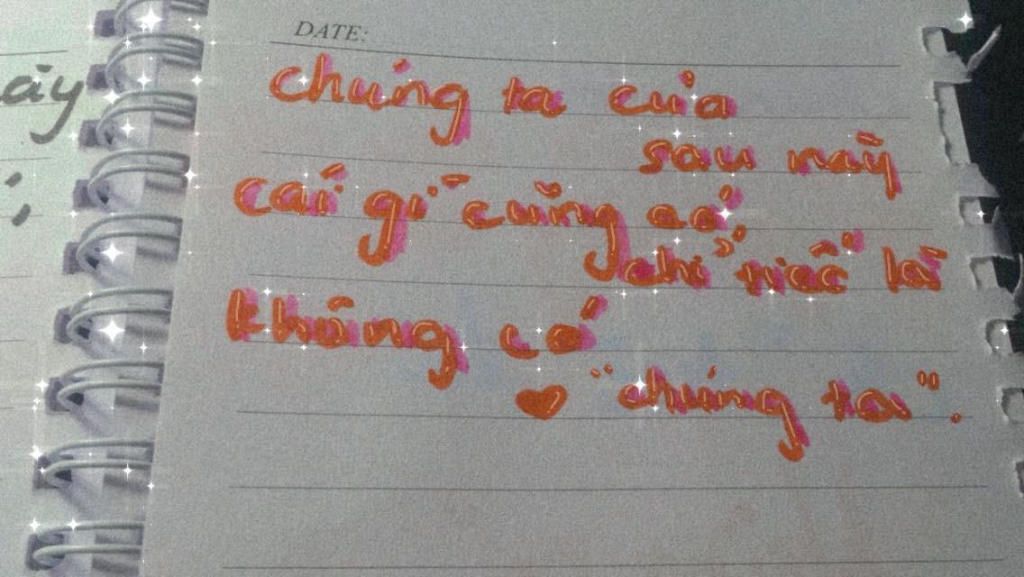 ày
DATE:
chúng ta của
sau này
cái gì cũng có
chỉ tiếc là
không có
"chúng ta".